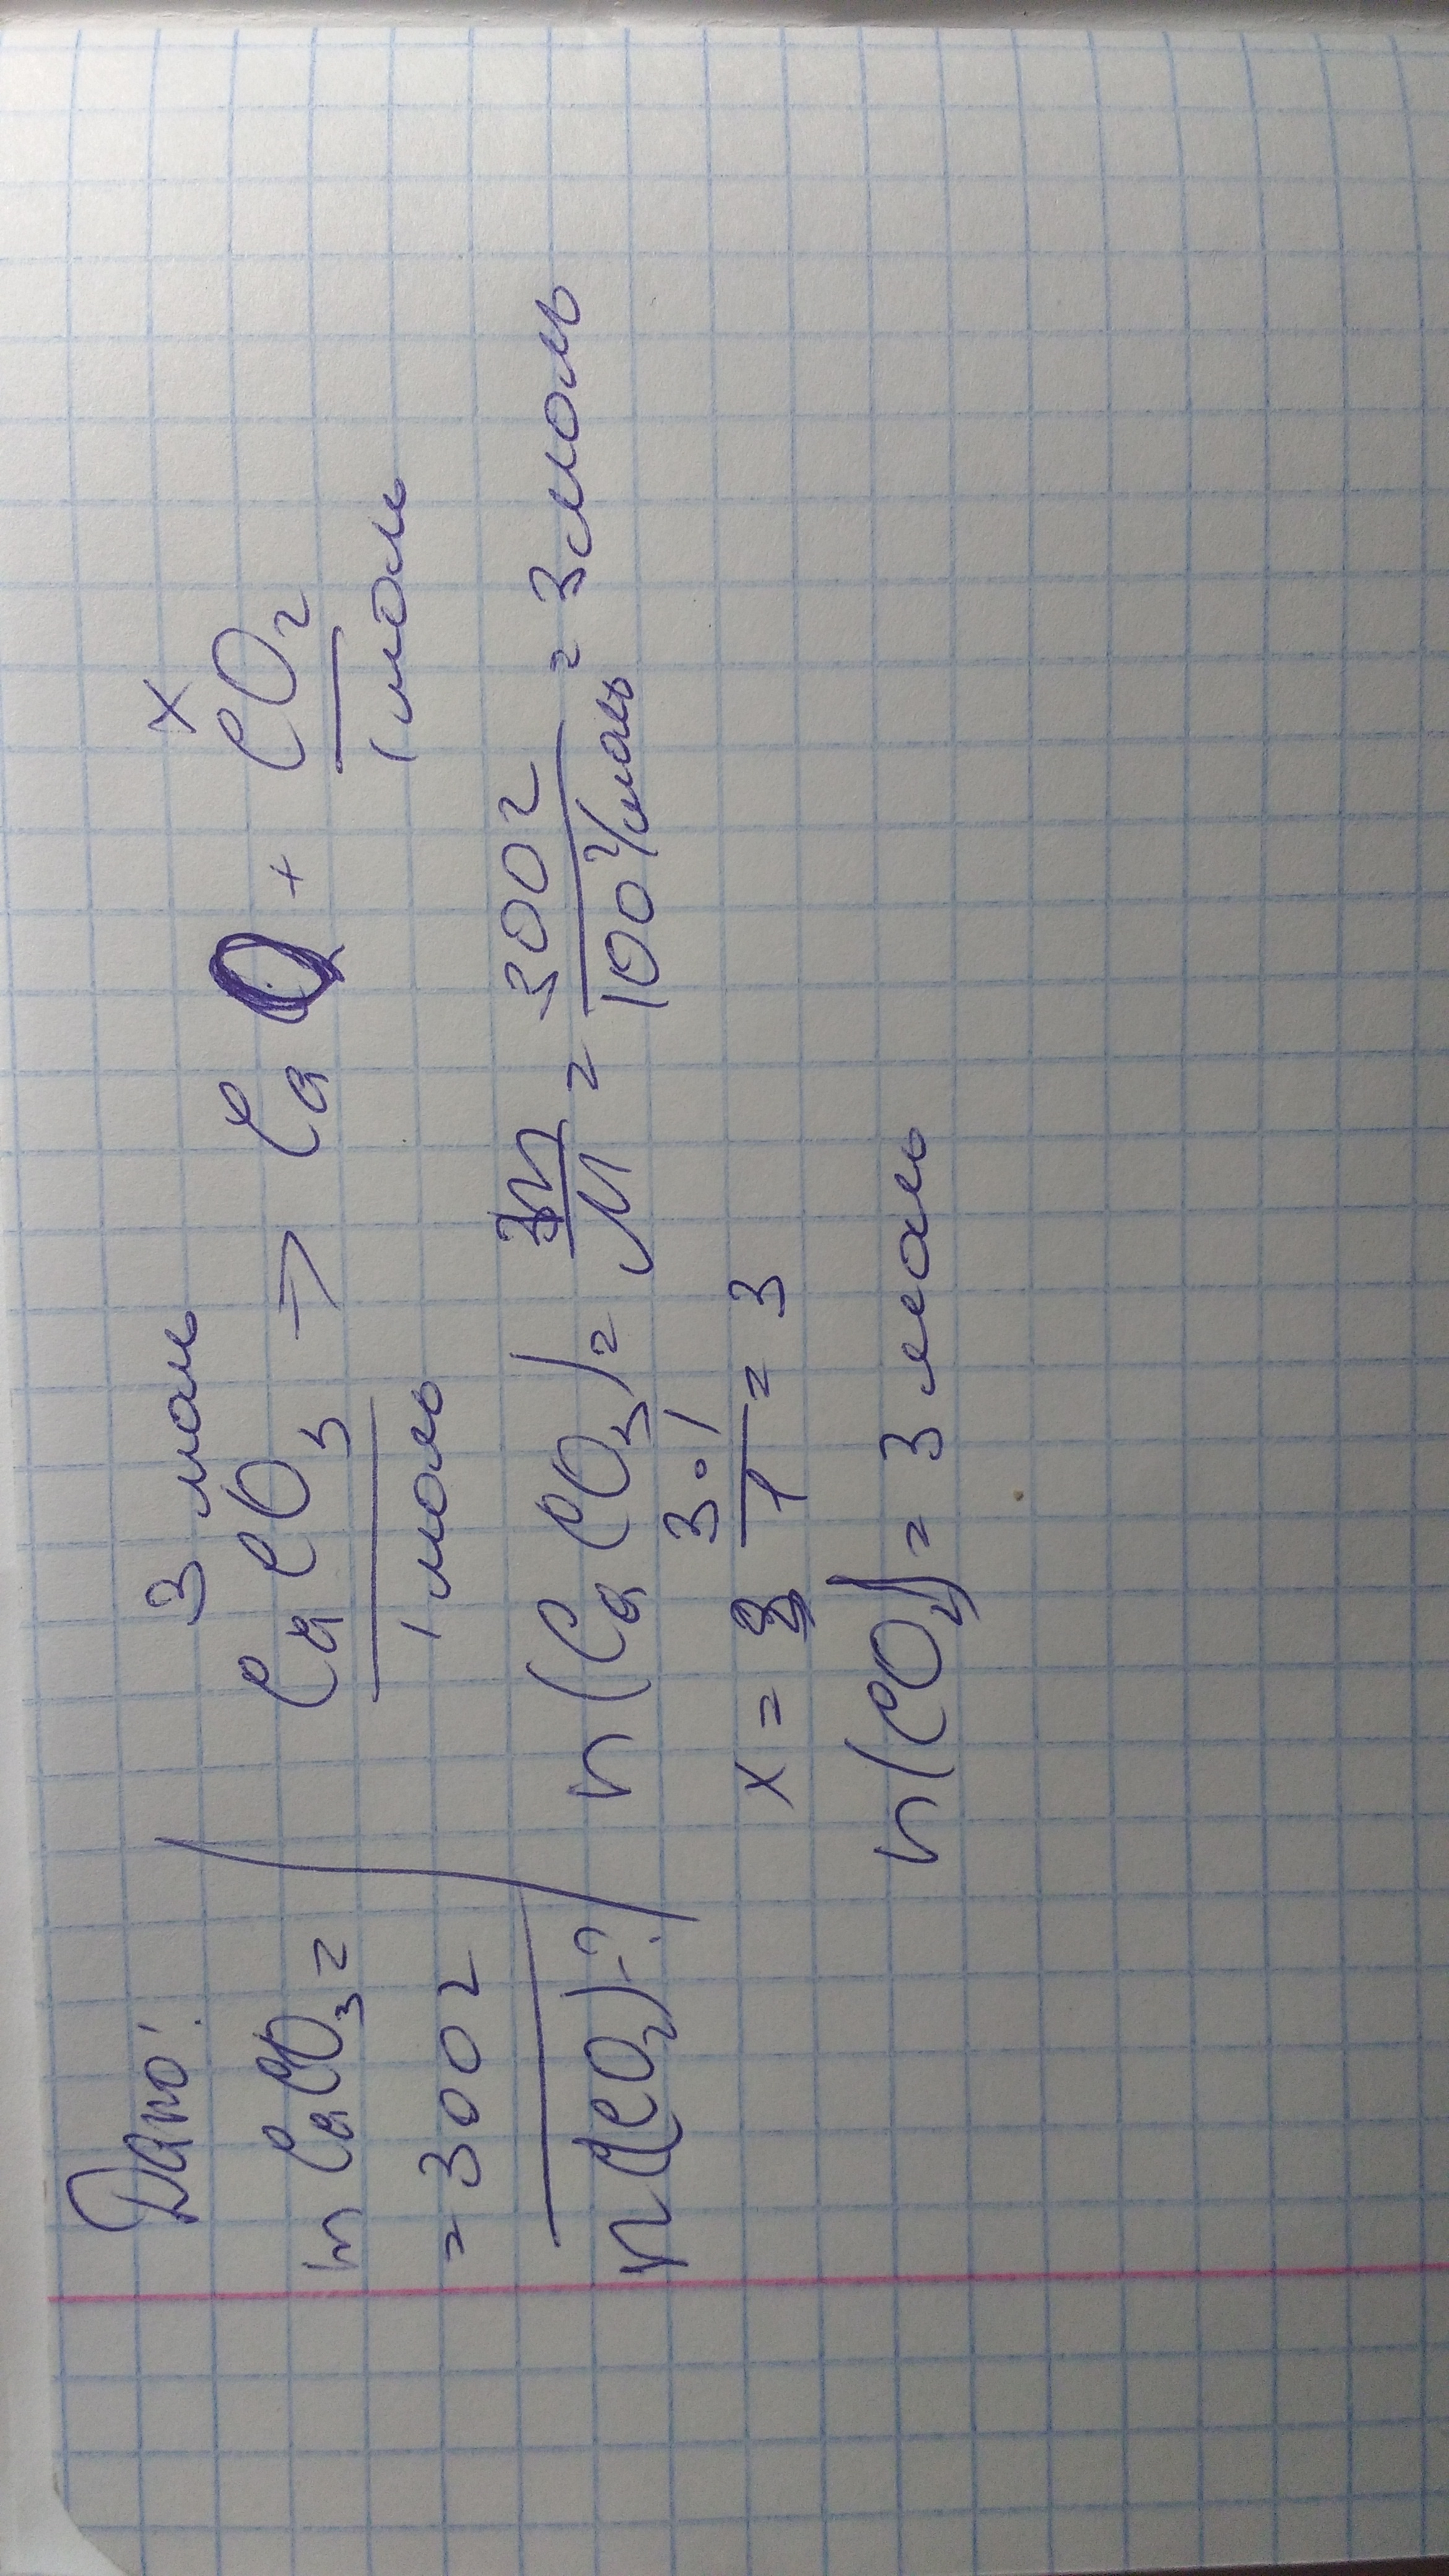 Дано:
m CaCO3 =
= 300 г
n(CO2)-?
3 моль x
CaCO3 → CaO + CO2
1 моль 1 моль
n(CaCO3) = m/M = 300 г/100 г/моль = 3 моль
x = 3·1/1 = 3
n(CO2) = 3 моль